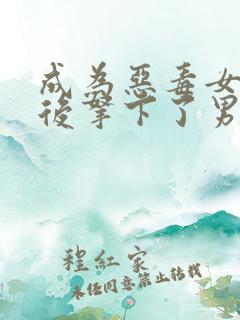 成為惡毒女
後拿下了男
程紅家
未任同意禁止转载